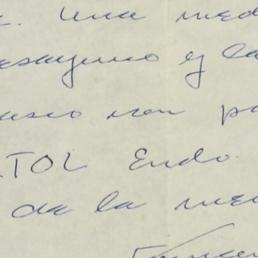 Una med
esayuno y la
pa
TOL Endo.
de la me